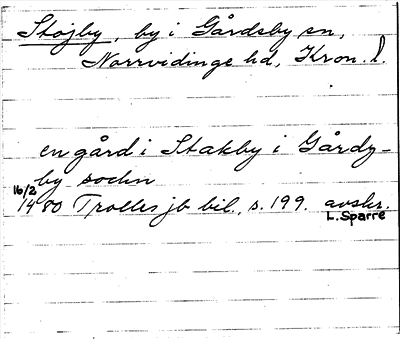 Stojby, by i Gårdsby sn,
Norrvidinge hd, Kron. l.
en gård i Stakby i Gårdz-
by sockn
16/2
1480 Trolles jb bil., s. 199. avskr.
L. Sparre